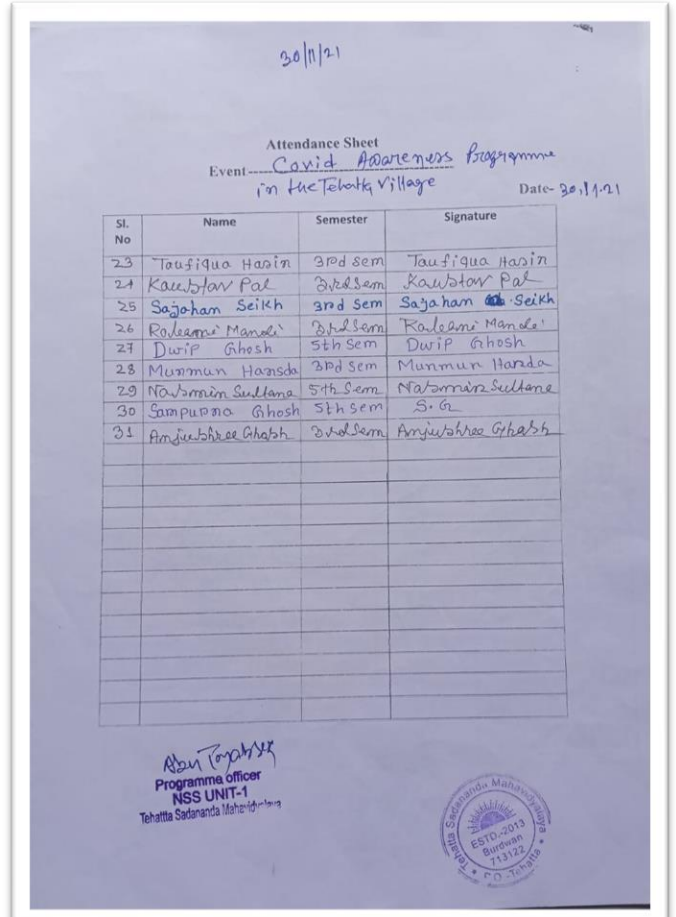 30/11/21
Attendance Sheet
Event----- Covid Awareness Programme
in the Tehatta Village
Date- 30.11.21
Sl. No Name Semester Signature
23 Taufiqua Hasin 3rd sem Taufiqua Hasin
24 Kaustav Pal 3rd Sem Kaustav Pal
25 Sajahan Seikh 3rd Sem Sajahan Seikh
26 Mandi 3rd Sem
27 Dwip Ghosh 5th Sem Dwip Ghosh
28 Munmun Hansda 3rd Sem Munmun Handa
29 Nasmin Sultana 5th Sem Nasmin Sultana
30 Sampurna Ghosh 5th sem S.G
31 Anjushree Ghosh 3rd Sem Anjushree Ghosh
Programme officer
NSS UNIT-1
Tehattta Sadananda Mahavidyalaya
Tehatta Sadananda Mahavidyalaya
ESTD.-2013
Burdwan
713122
P.O.-Tehatta